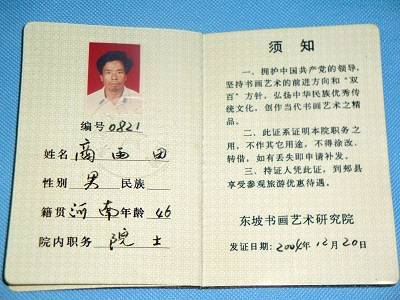 编号 0821
姓名 商画田
性别 男 民族
籍贯 河南 年龄 46
院内职务 院士
须知
一、拥护中国共产党的领导，
坚持书画艺术的前进方向和“双
百”方针，弘扬中华民族优秀传
统文化，创作当代书画艺术之精
品。
二、此证系证明本院职务之
用，不作其它用途，不得涂改、
转借，如有丢失即申请补发。
三、持证人凭此证，到郏县
享受参观旅游优惠待遇。
东坡书画艺术研究院
发证日期：2004年12月20日